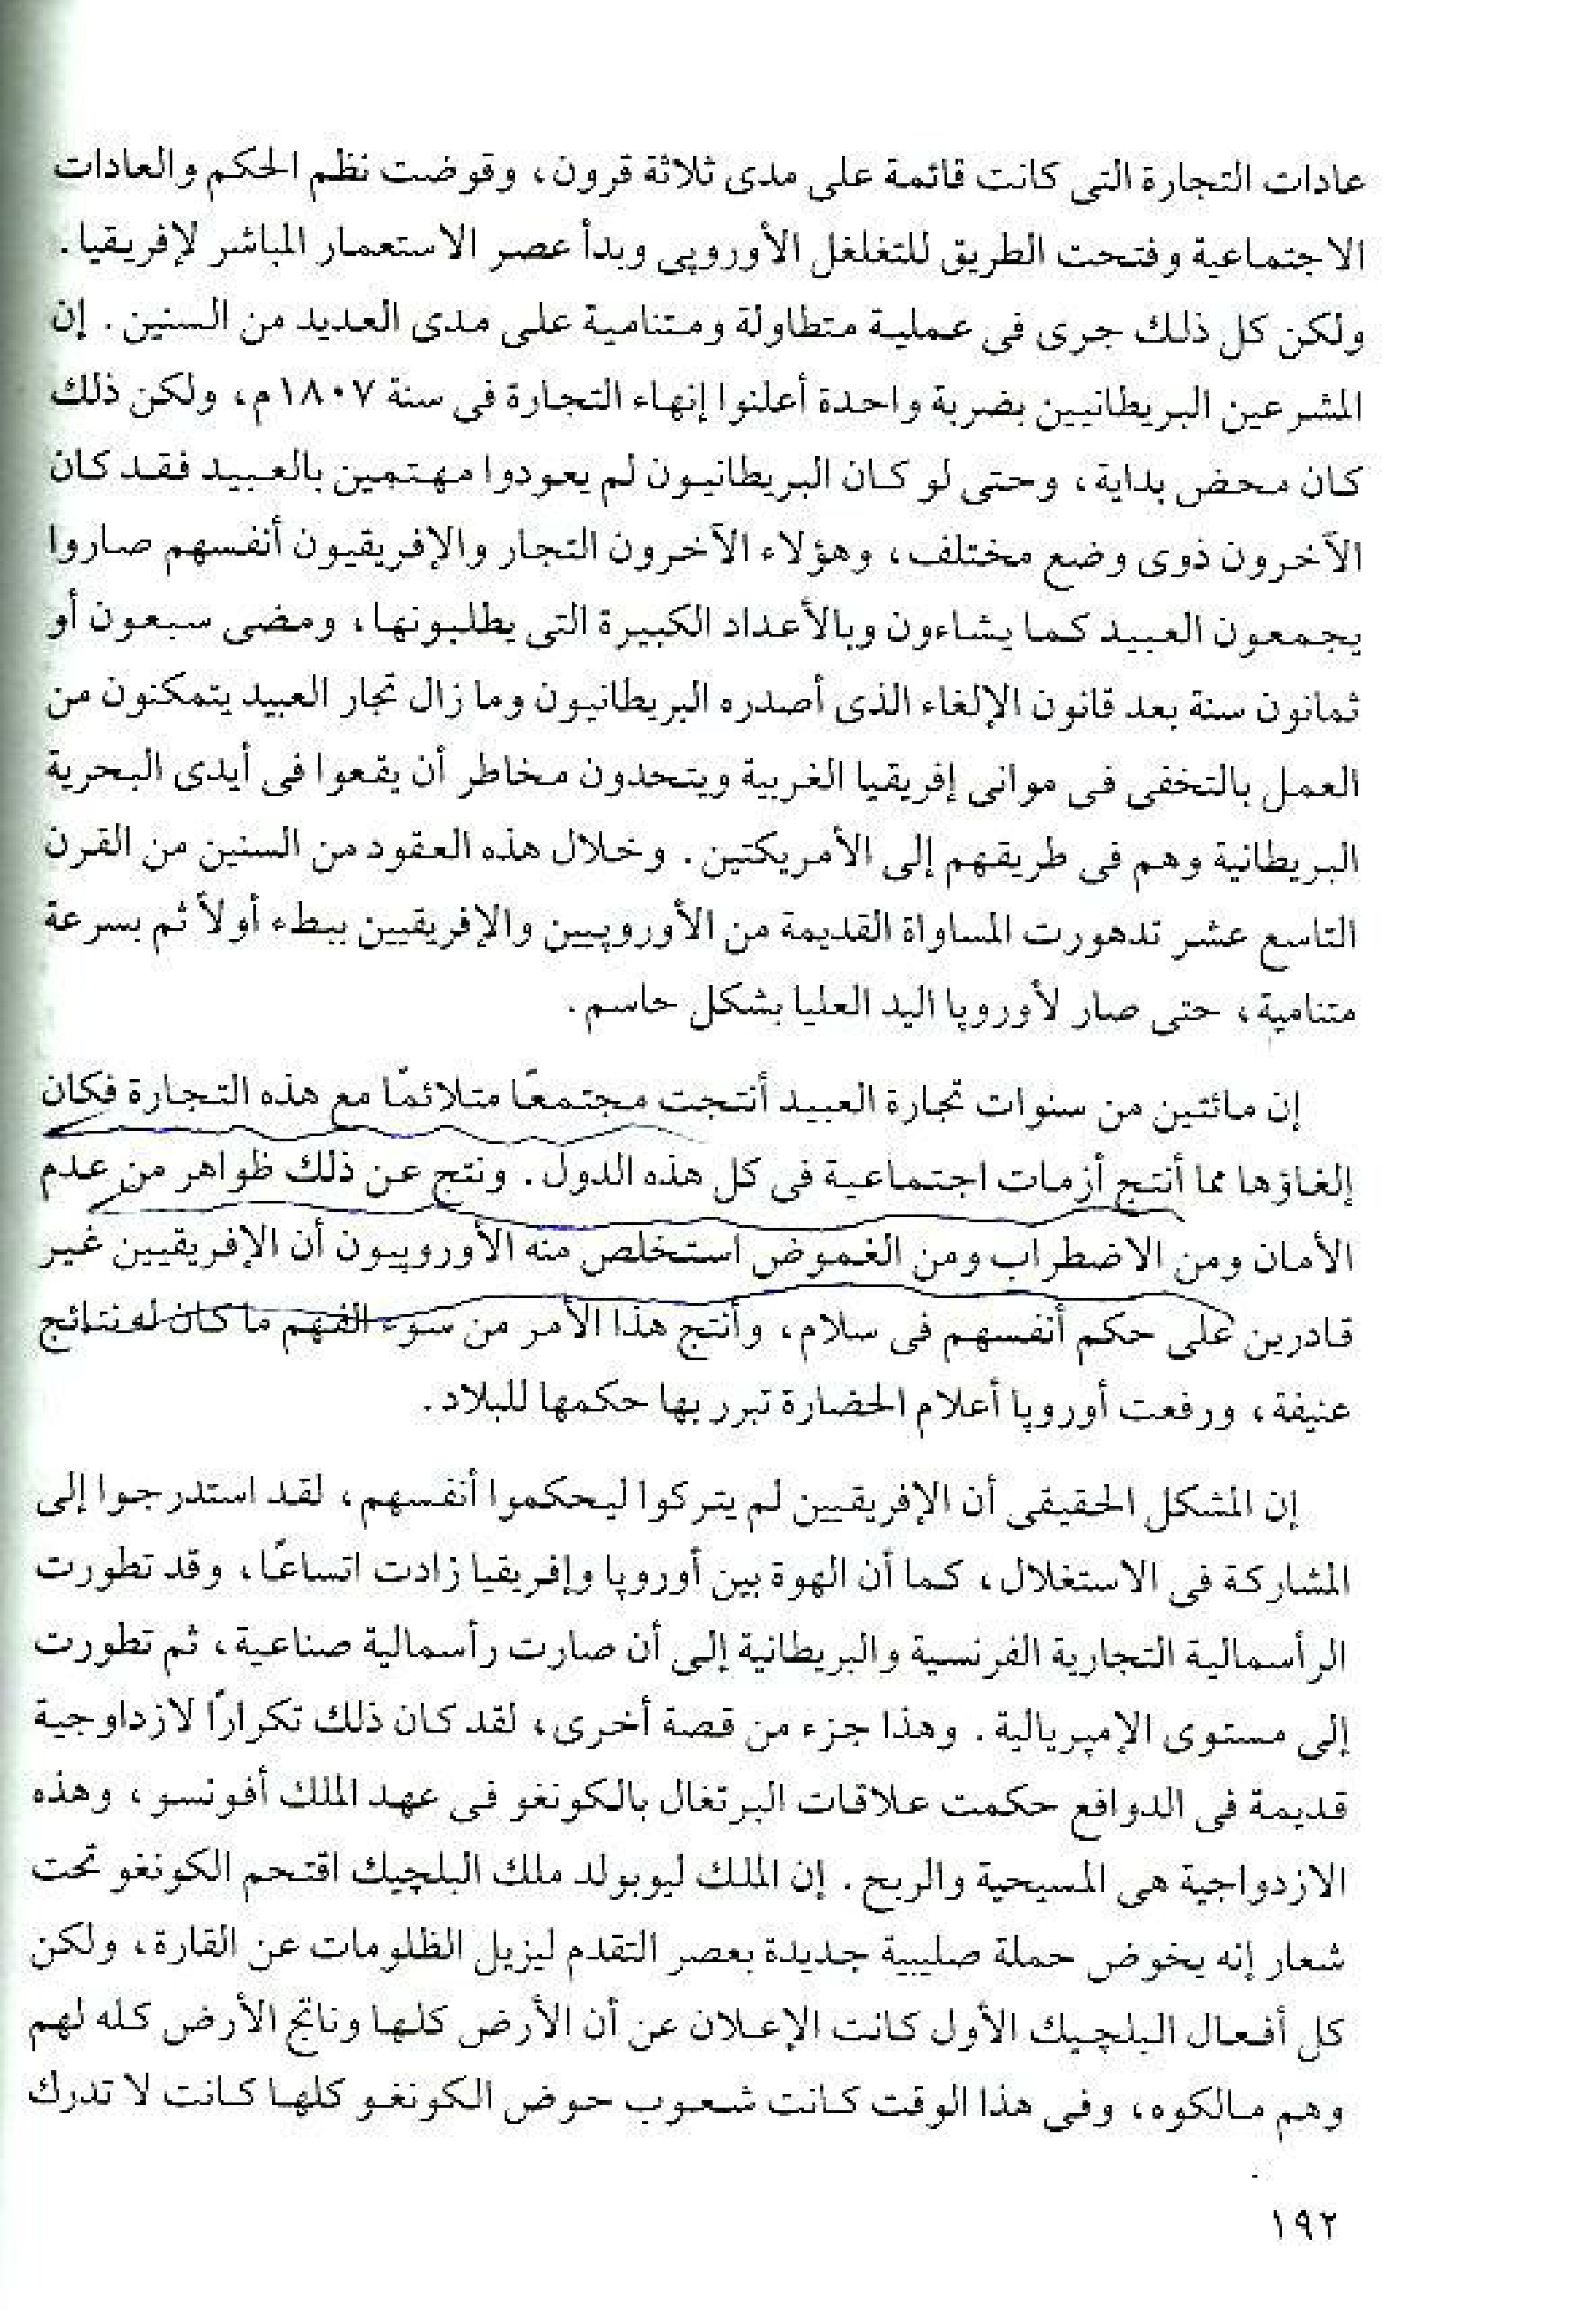 عادات التجارة التى كانت قائمة على مدى ثلاثة قرون، وقوضت نظم الحكم والعادات
الاجتماعية وفتحت الطريق للتغلغل الأوروپى وبدأ عصر الاستعمار المباشر لإفريقيا.
ولكن كل ذلك جرى فى عملية متطاولة ومتنامية على مدى العديد من السنين. إن
المشرعين البريطانيين بضربة واحدة أعلنوا إنهاء التجارة فى سنة ١٨٠٧م، ولكن ذلك
كان محض بداية، وحتى لو كان البريطانيون لم يعودوا مهتمين بالعبيد فقد كان
الآخرون ذوى وضع مختلف، وهؤلاء الآخرون التجار والإفريقيون أنفسهم صاروا
يجمعون العبيد كما يشاءون وبالأعداد الكبيرة التى يطلبونها، ومضى سبعون أو
ثمانون سنة بعد قانون الإلغاء الذى أصدره البريطانيون وما زال تجار العبيد يتمكنون من
العمل بالتخفى فى موانى إفريقيا الغربية ويتحدون مخاطر أن يقعوا فى أيدى البحرية
البريطانية وهم فى طريقهم إلى الأمريكتين. وخلال هذه العقود من السنين من القرن
التاسع عشر تدهورت المساواة القديمة من الأوروپيين والإفريقيين ببطء أولاً ثم بسرعة
متنامية، حتى صار لأوروپا اليد العليا بشكل حاسم.
إن مائتين من سنوات تجارة العبيد أنتجت مجتمعًا متلائمًا مع هذه التجارة فكان
إلغاؤها مما أنتج أزمات اجتماعية فى كل هذه الدول. ونتج عن ذلك ظواهر من عدم
الأمان ومن الاضطراب ومن الغموض استخلص منه الأوروپيون أن الإفريقيين غير
قادرين على حكم أنفسهم فى سلام، وأنتج هذا الأمر من سوء الفهم ما كان له نتائج
عنيفة، ورفعت أوروپا أعلام الحضارة تبرر بها حكمها للبلاد.
إن المشكل الحقيقى أن الإفريقيين لم يتركوا ليحكموا أنفسهم، لقد استدرجوا إلى
المشاركة فى الاستغلال، كما أن الهوة بين أوروپا وإفريقيا زادت اتساعًا، وقد تطورت
الرأسمالية التجارية الفرنسية والبريطانية إلى أن صارت رأسمالية صناعية، ثم تطورت
إلى مستوى الإمپريالية. وهذا جزء من قصة أخرى، لقد كان ذلك تكرارًا لازدواجية
قديمة فى الدوافع حكمت علاقات البرتغال بالكونغو فى عهد الملك أفونسو، وهذه
الازدواجية هى المسيحية والربح. إن الملك ليوبولد ملك البلچيك اقتحم الكونغو تحت
شعار إنه يخوض حملة صليبية جديدة بعصر التقدم ليزيل الظلومات عن القارة، ولكن
كل أفعال البلچيك الأول كانت الإعلان عن أن الأرض كلها وناتج الأرض كله لهم
وهم مالكوه، وفى هذا الوقت كانت شعوب حوض الكونغو كلها كانت لا تدرك
١٩٢